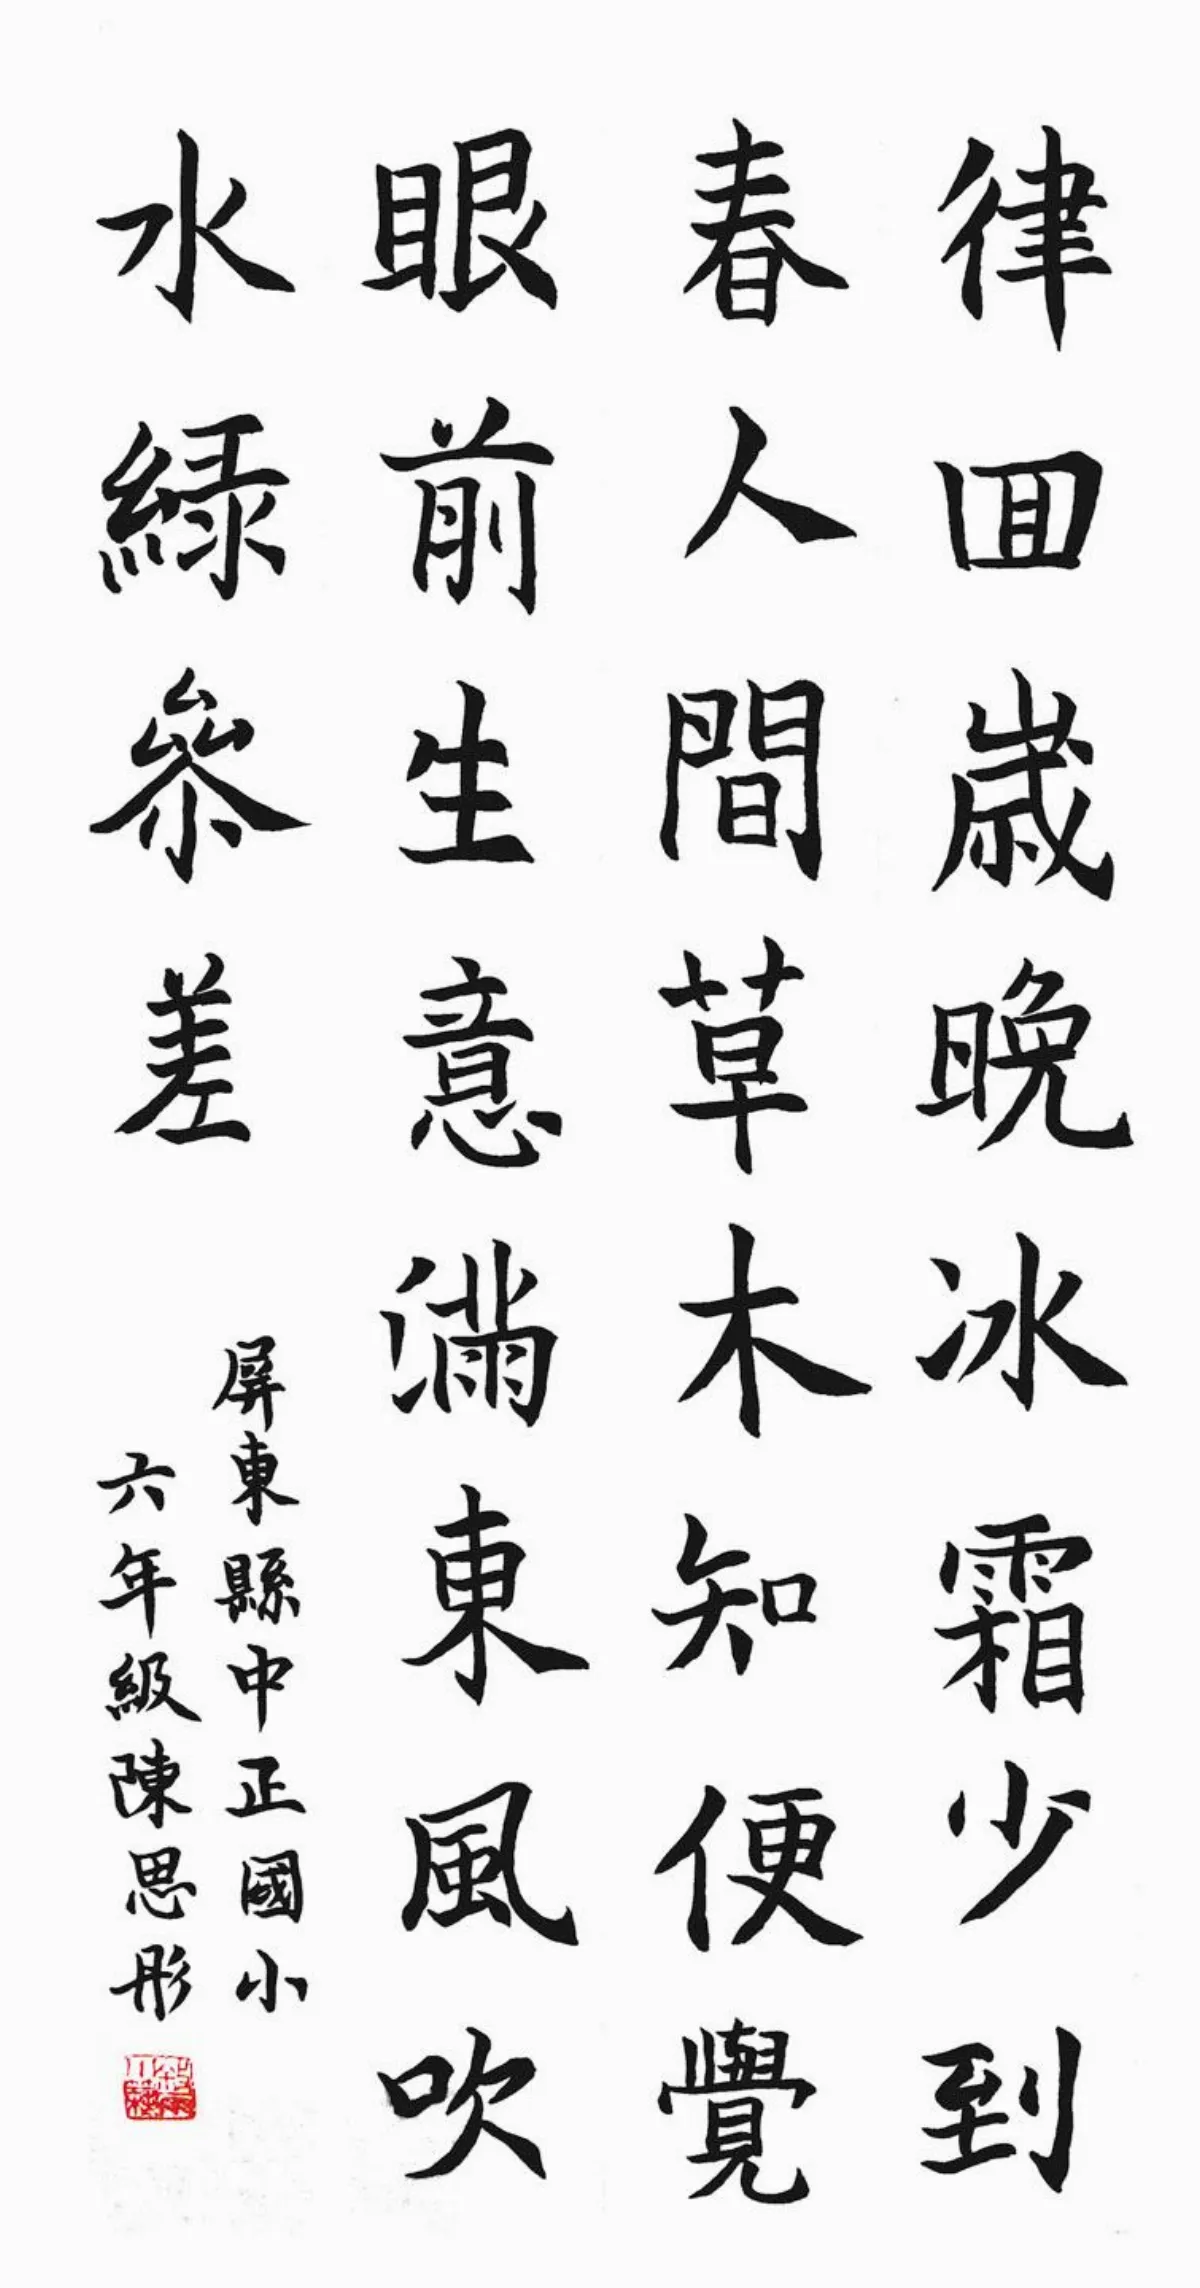 律回歲晚冰霜少到
春人間草木知便覺
眼前生意滿東風吹
水綠參差
屏東縣中正國小
六年級陳思彤